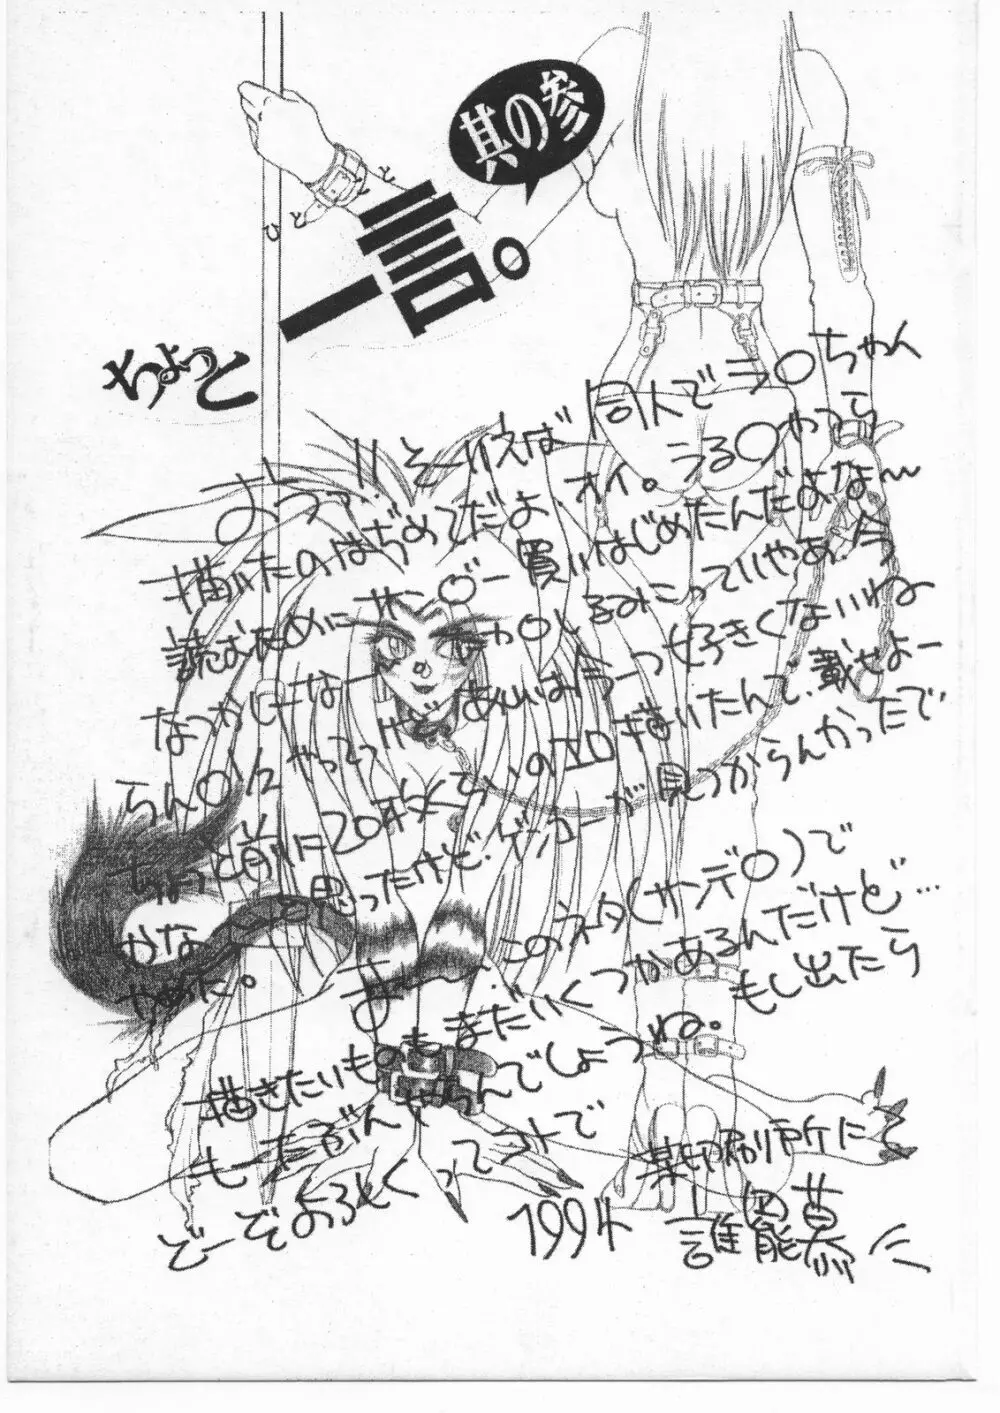 其の参
ちょっと一言。
ひとこと
おうっ!! そーいえば 同人で ラ〇ちゃん
描いたのはぢめてだよ オイ。うる〇やつら
読むために サ〇デー買いはじめたんだよな〜
なつかしーなー キャ〇とるみこっていやぁ、今
らん〇1/2 やってっけど あしゃあ うーっ 好きくないわね
ちょっと前に20枚くらいのエロ描いたんで、載せよー
かな と思ったけど、ゲンコーが見つからんかったで
やめた。 ま〜、このネタ(サンデ〇)で
描きたいものもまだいくつかあるんだけど…
もーたぶんやらんでしょうね。もし出たら
どーぞよろしくってコトで
1994 某印刷所にて
誰能慕